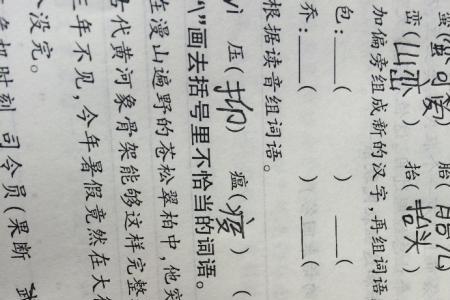 蛮(蛮可爱) 胎(胎儿)
峦(山峦) 抬(抬头)
加偏旁组成新的汉字,再组词语
包:____( ) ____(
乔:____( ) ____(
根据读音组词语。
yì 压(抑) 瘟(疫) (
“\”画去括号里不恰当的词语。
在漫山遍野的苍松翠柏中,他突
代黄河象骨架能够这样完整
三年不见,今年暑假竟然在大
没完。
机时刻,司令员(果断 武